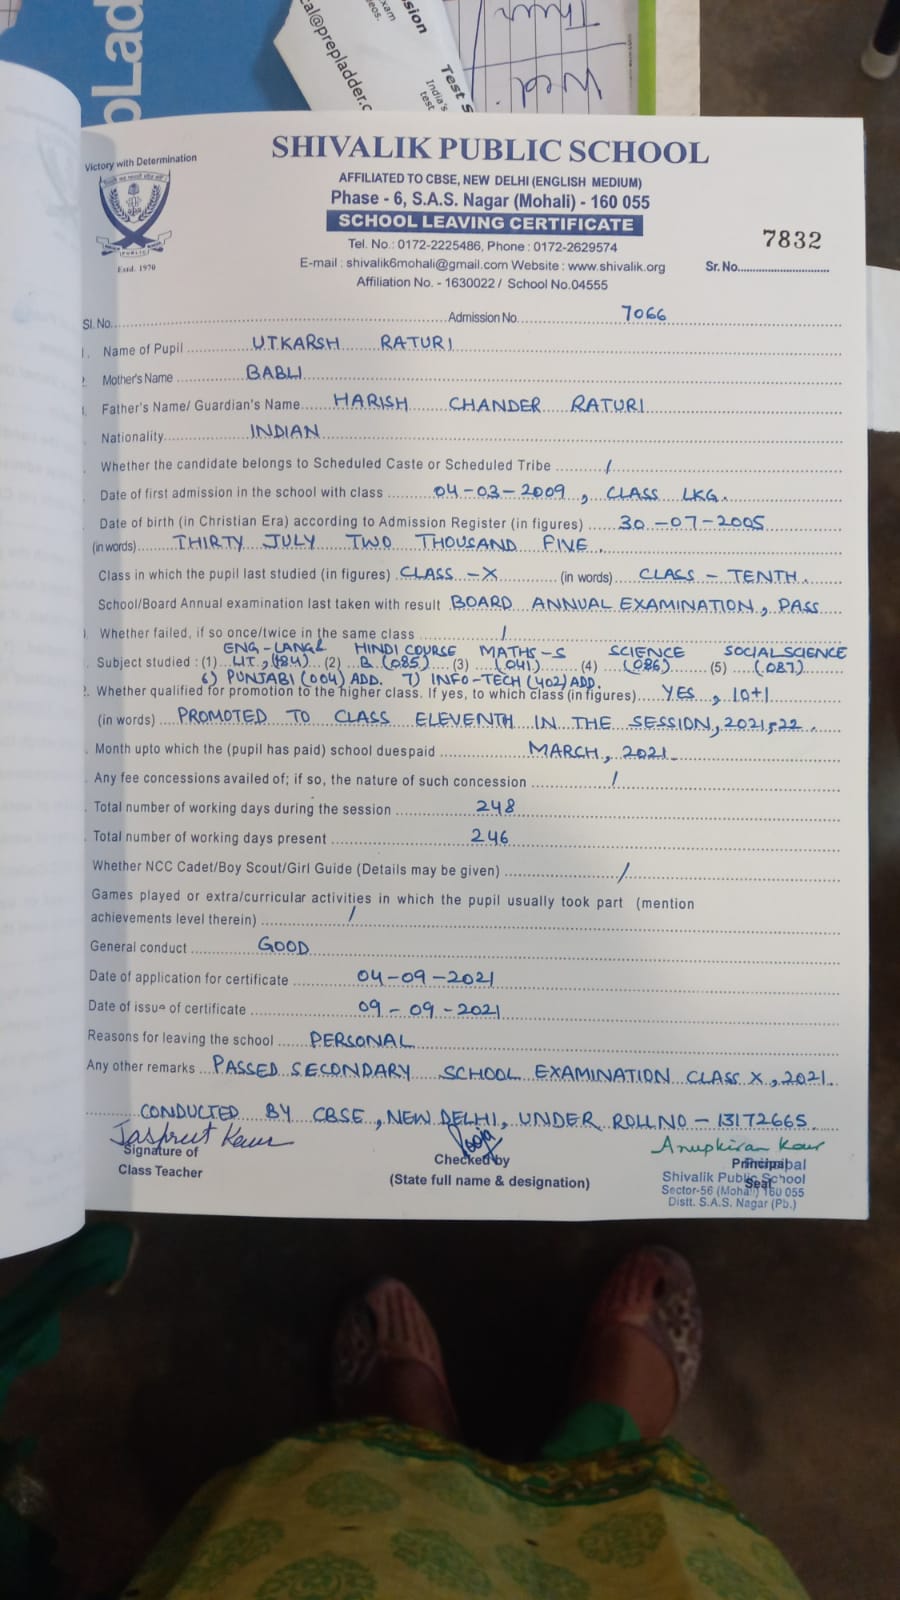 pLad
cal@prepladder.c
exam
deos.
ssion
Test S
India's
test
Thur
Wed.
SHIVALIK PUBLIC SCHOOL
Victory with Determination
AFFILIATED TO CBSE, NEW DELHI (ENGLISH MEDIUM)
Phase - 6, S.A.S. Nagar (Mohali) - 160 055
SCHOOL LEAVING CERTIFICATE
PUBLIC
Estd. 1970
Tel. No.: 0172-2225486, Phone : 0172-2629574
7832
E-mail : shivalik6mohali@gmail.com Website : www.shivalik.org
Sr. No.
Affiliation No. - 1630022 / School No.04555
Sl. No. Admission No. 7066
Name of Pupil UTKARSH RATURI
Mother's Name BABLI
Father's Name/ Guardian's Name HARISH CHANDER RATURI
Nationality INDIAN
Whether the candidate belongs to Scheduled Caste or Scheduled Tribe /
Date of first admission in the school with class 04-03-2009, CLASS LKG.
Date of birth (in Christian Era) according to Admission Register (in figures) 30-07-2005
(in words) THIRTY JULY TWO THOUSAND FIVE.
Class in which the pupil last studied (in figures) CLASS-X (in words) CLASS-TENTH.
School/Board Annual examination last taken with result BOARD ANNUAL EXAMINATION, PASS
Whether failed, if so once/twice in the same class /
ENG-LANG& HINDI COURSE MATHS-S SCIENCE SOCIALSCIENCE
Subject studied : (1) LIT, (184) (2) B (085) (3) (041) (4) (086) (5) (087)
6) PUNJABI (004) ADD. 7) INFO-TECH (402) ADD.
Whether qualified for promotion to the higher class. If yes, to which class (in figures) YES, 10+1
(in words) PROMOTED TO CLASS ELEVENTH IN THE SESSION, 2021-22.
Month upto which the (pupil has paid) school duespaid MARCH, 2021.
Any fee concessions availed of; if so, the nature of such concession /
Total number of working days during the session 248
Total number of working days present 246
Whether NCC Cadet/Boy Scout/Girl Guide (Details may be given) /
Games played or extra/curricular activities in which the pupil usually took part (mention
achievements level therein) /
General conduct GOOD
Date of application for certificate 04-09-2021
Date of issue of certificate 09-09-2021
Reasons for leaving the school PERSONAL
Any other remarks PASSED SECONDARY SCHOOL EXAMINATION CLASS X, 2021.
CONDUCTED BY CBSE, NEW DELHI, UNDER ROLLNO-13172665.
Jaspreet Kaur Pooja Anupkiran Kaur
Signature of
Class Teacher
Checked by
(State full name & designation)
Principal
Seal
Principal
Shivalik Public School
Sector-56 (Mohali) 160 055
Distt. S.A.S. Nagar (Pb.)